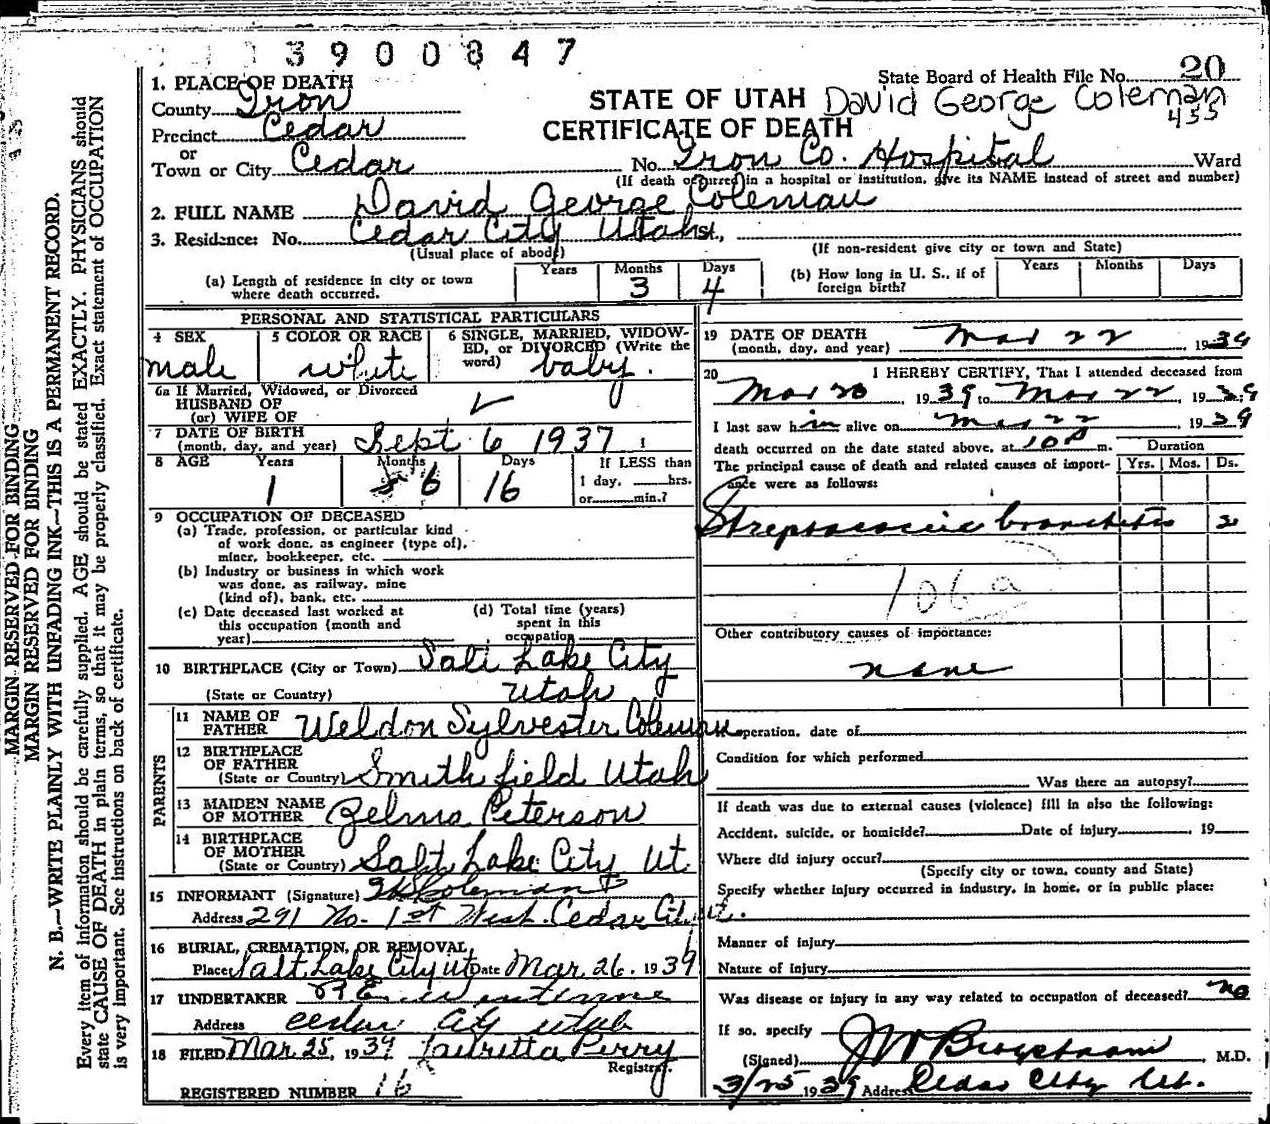 3900847
State Board of Health File No. 20
1. PLACE OF DEATH
County Iron
STATE OF UTAH David George Coleman
455
Precinct Cedar
CERTIFICATE OF DEATH
or
Town or City Cedar No. Iron Co. Hospital Ward
(If death occurred in a hospital or institution, give its NAME instead of street and number)
2. FULL NAME David George Coleman
3. Residence: No. Cedar City Utah St.,
(Usual place of abode) (If non-resident give city or town and State)
(a) Length of residence in city or town where death occurred. Years Months 3 Days 4
(b) How long in U. S., if of foreign birth? Years Months Days
PERSONAL AND STATISTICAL PARTICULARS
4 SEX male
5 COLOR OR RACE white
6 SINGLE, MARRIED, WIDOWED, or DIVORCED (Write the word) baby.
6a If Married, Widowed, or Divorced
HUSBAND OF
(or) WIFE OF
7 DATE OF BIRTH
(month, day, and year) Sept 6 1937
8 AGE Years 1 Months 6 Days 16 If LESS than 1 day, hrs. or min.?
9 OCCUPATION OF DECEASED
(a) Trade, profession, or particular kind
of work done, as engineer (type of),
miner, bookkeeper, etc.
(b) Industry or business in which work
was done, as railway, mine
(kind of), bank, etc.
(c) Date deceased last worked at
this occupation (month and
year)
(d) Total time (years)
spent in this
occupation
10 BIRTHPLACE (City or Town) Salt Lake City
(State or Country) Utah
PARENTS
11 NAME OF
FATHER Weldon Sylvester Coleman
12 BIRTHPLACE
OF FATHER
(State or Country) Smithfield Utah
13 MAIDEN NAME
OF MOTHER Zelma Peterson
14 BIRTHPLACE
OF MOTHER
(State or Country) Salt Lake City Ut
15 INFORMANT (Signature) Coleman
Address 291 No. 1st West Cedar City Ut.
16 BURIAL, CREMATION, OR REMOVAL,
Place Salt Lake City Ut Date Mar. 26, 1939
17 UNDERTAKER
Address Cedar City Utah
18 FILED Mar. 25, 1939 Lauretta Perry
Registrar.
REGISTERED NUMBER 16
19 DATE OF DEATH
(month, day, and year) Mar 22, 1939
20 I HEREBY CERTIFY, That I attended deceased from
Mar 20, 1939 to Mar 22, 1939
I last saw him alive on Mar 22 1939
death occurred on the date stated above, at 10 P m.
Duration
The principal cause of death and related causes of importance were as follows: Yrs. Mos. Ds.
Streptococcic bronchitis 2
106a
Other contributory causes of importance:
none
operation, date of
Condition for which performed
Was there an autopsy?
If death was due to external causes (violence) fill in also the following:
Accident, suicide, or homicide? Date of injury 19
Where did injury occur?
(Specify city or town, county and State)
Specify whether injury occurred in industry, in home, or in public place:
Manner of injury
Nature of injury
Was disease or injury in any way related to occupation of deceased? no
If so, specify
(Signed) , M.D.
3/25 1939 Address Cedar City Ut.
MARGIN RESERVED FOR BINDING
MARGIN RESERVED FOR BINDING
N. B.—WRITE PLAINLY WITH UNFADING INK—THIS IS A PERMANENT RECORD.
Every item of information should be carefully supplied. AGE should be stated EXACTLY. PHYSICIANS should
state CAUSE OF DEATH in plain terms, so that it may be properly classified. Exact statement of OCCUPATION
is very important. See instructions on back of certificate.